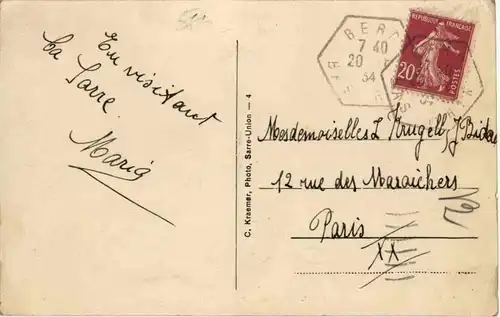 En visitant
la Sarre.
Maria
C. Kraemer, Photo, Sarre-Union - 4
7 40
20
34
REPUBLIQUE FRANÇAISE
20c
POSTES
Mesdemoiselles L Krugell, J
12 rue des Maraichers
Paris
XX
12